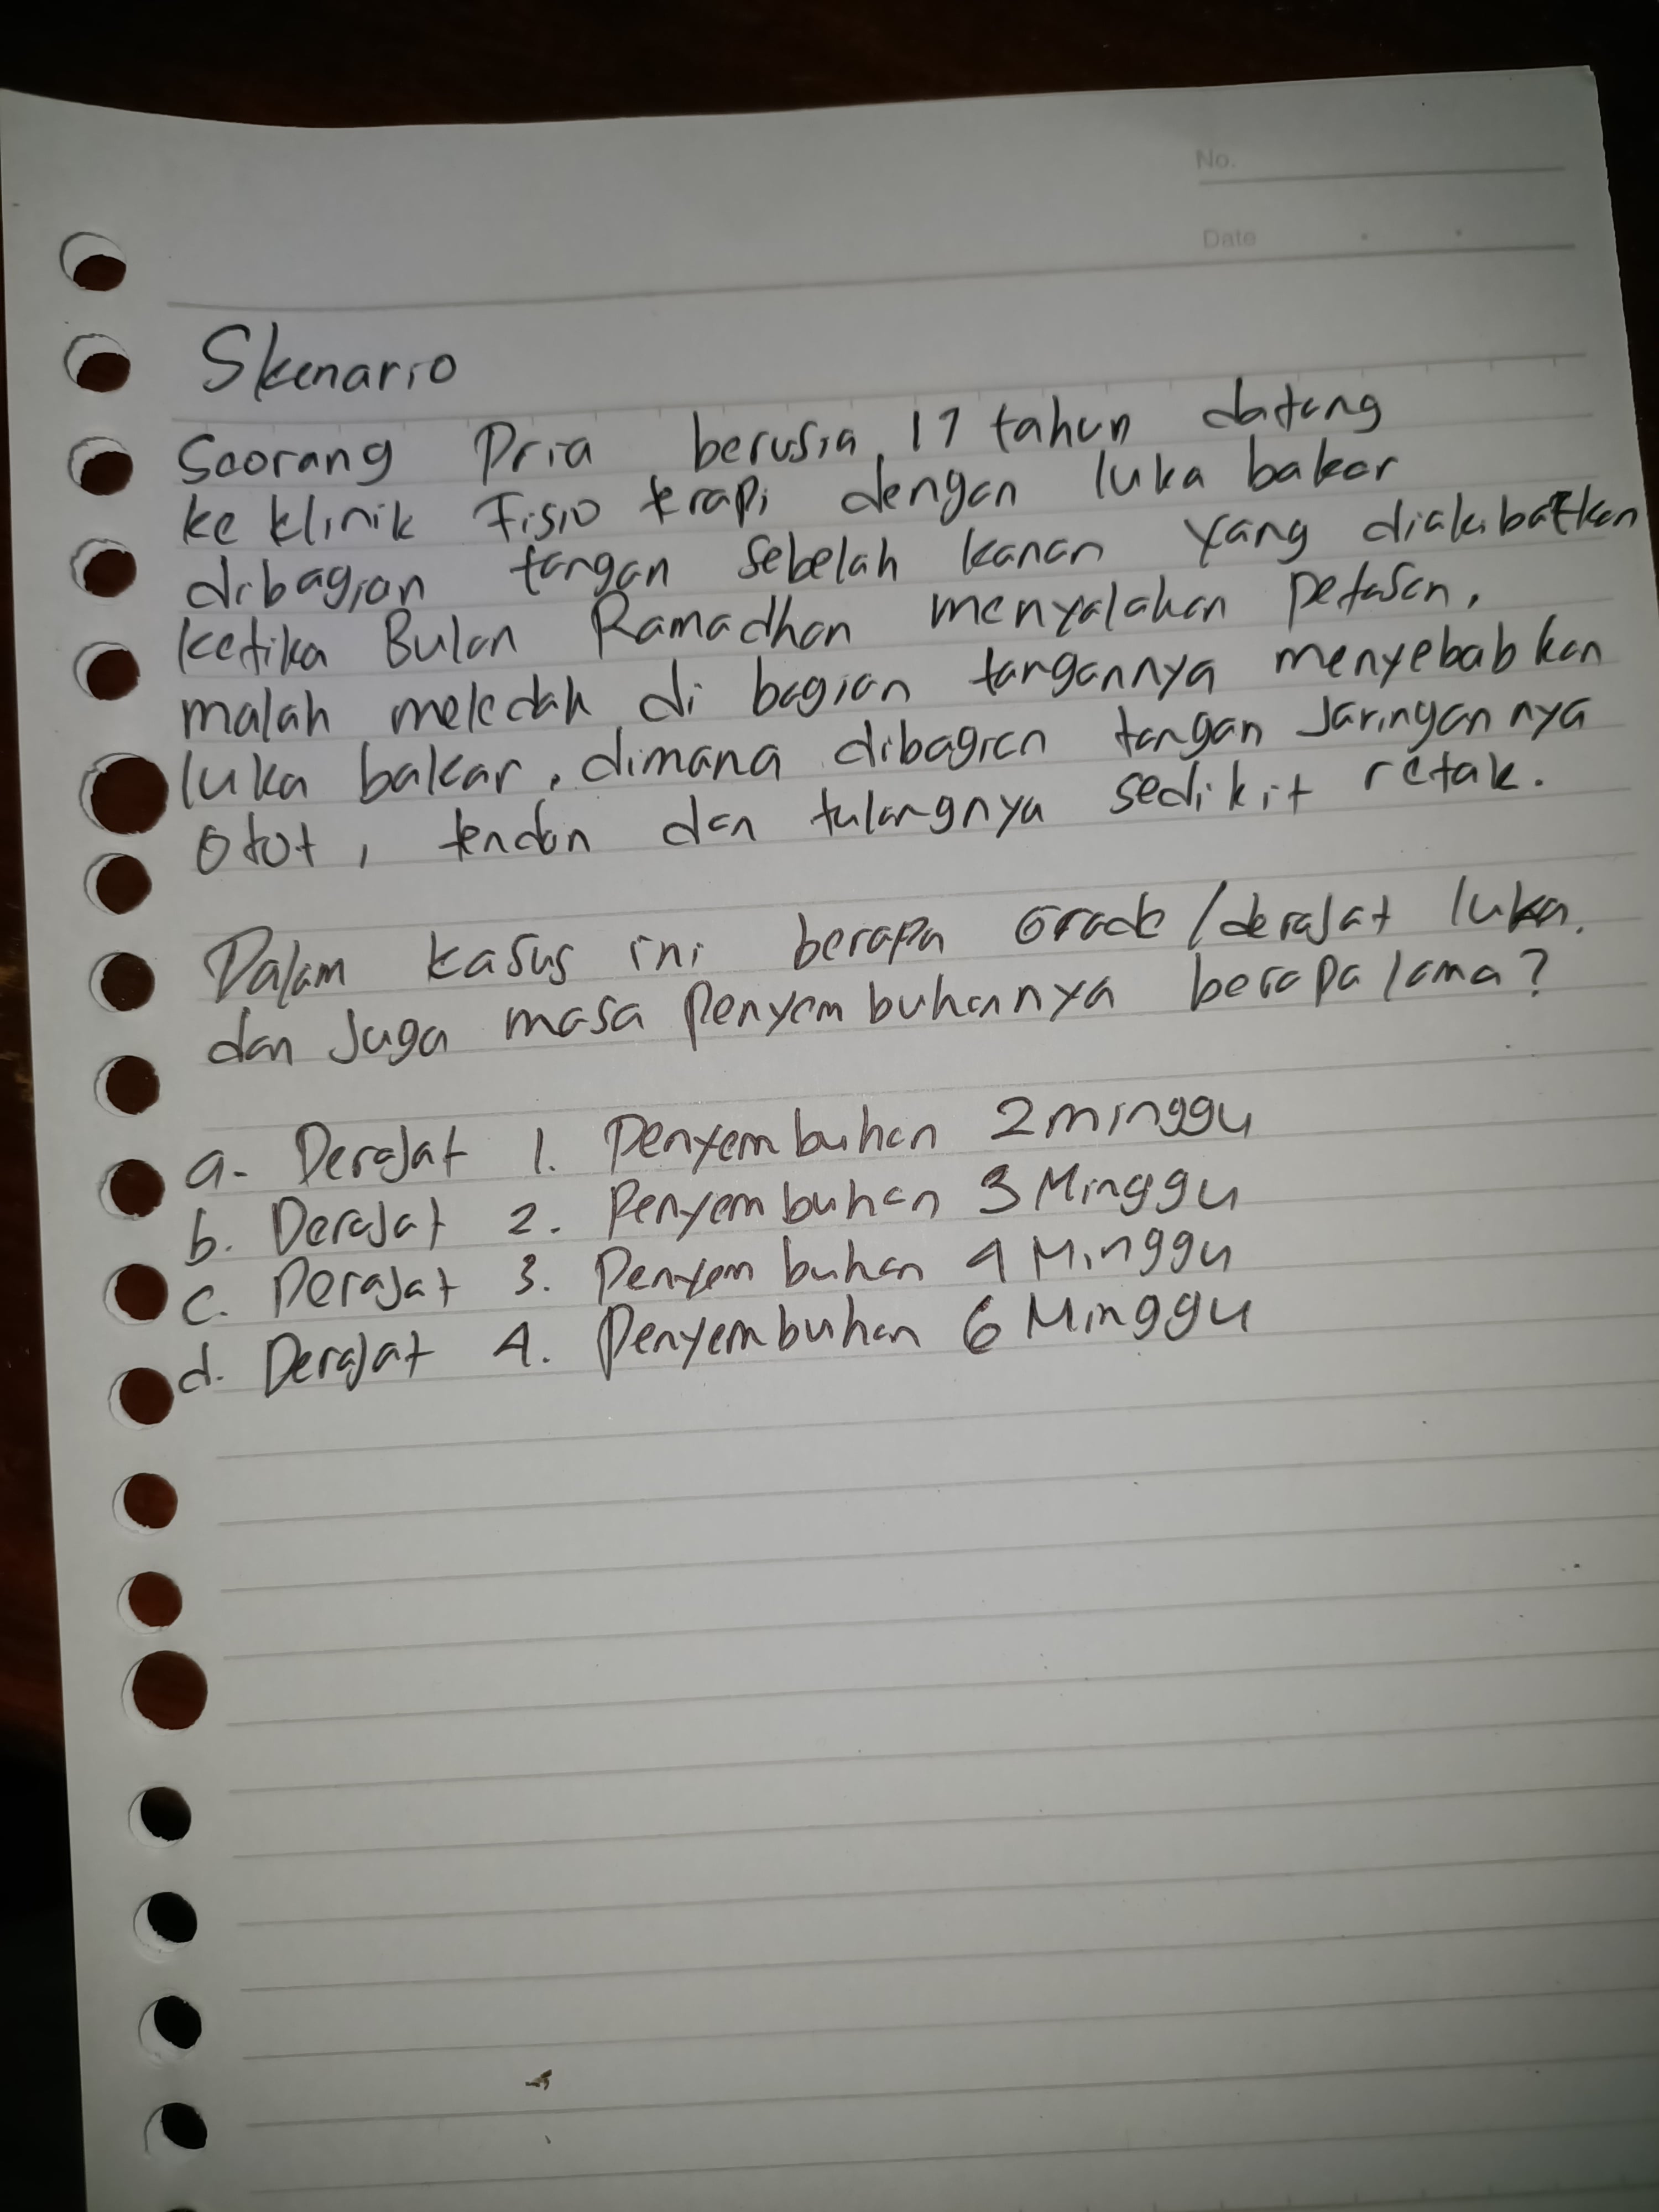 No.
Date
Skenario
Seorang Pria berusia 17 tahun datang
ke klinik Fisio terapi dengan luka bakar
dibagian tangan sebelah kanan yang diakibatkan
ketika Bulan Ramadhan menyalakan petasan,
malah meledak di bagian tangannya menyebabkan
luka bakar, dimana dibagian tangan Jaringannya
Otot, tendon dan tulangnya sedikit retak.
Dalam kasus ini berapa Grade/derajat luka.
dan Juga masa Penyembuhannya berapa lama?
a. Derajat 1. Penyembuhan 2 minggu
b. Derajat 2. Penyembuhan 3 Minggu
c. Derajat 3. Penyembuhan 4 Minggu
d. Derajat 4. Penyembuhan 6 Minggu